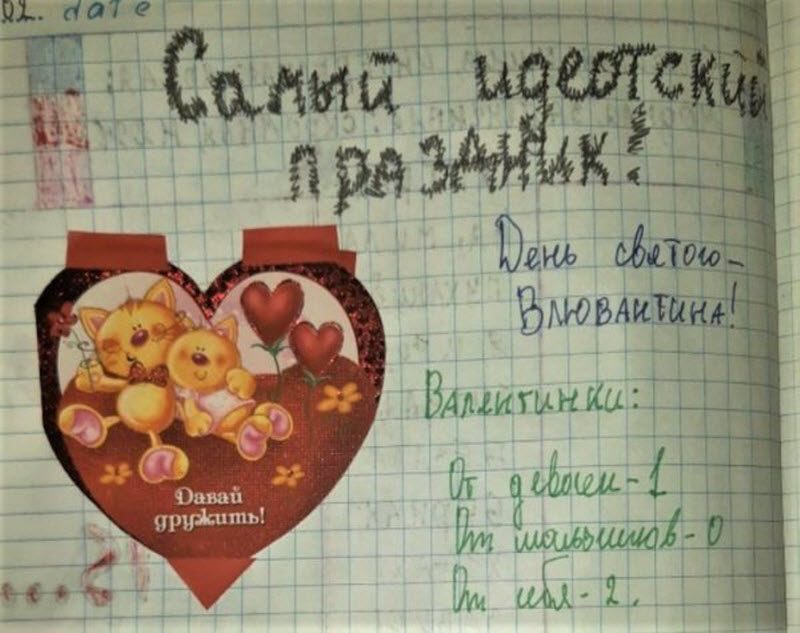 02. date
Самый идеотский
праздник!
День святого-
Влювантина!
Валентинки:
Давай
дружить!
От девочек-1
От мальчиков-0
От себя-2.